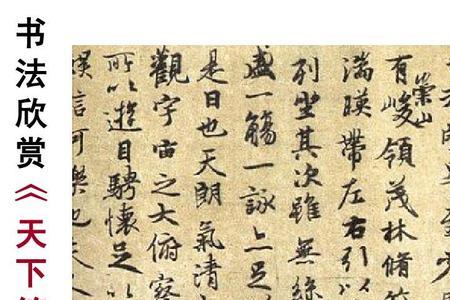 书法欣赏《天下
有崇山峻領茂林脩
湍暎帶左右引以
列坐其次雖無絲
盛一觴一詠亦足
是日也天朗氣清
觀宇宙之大俯察
所以遊目騁懷足以
信可樂也夫